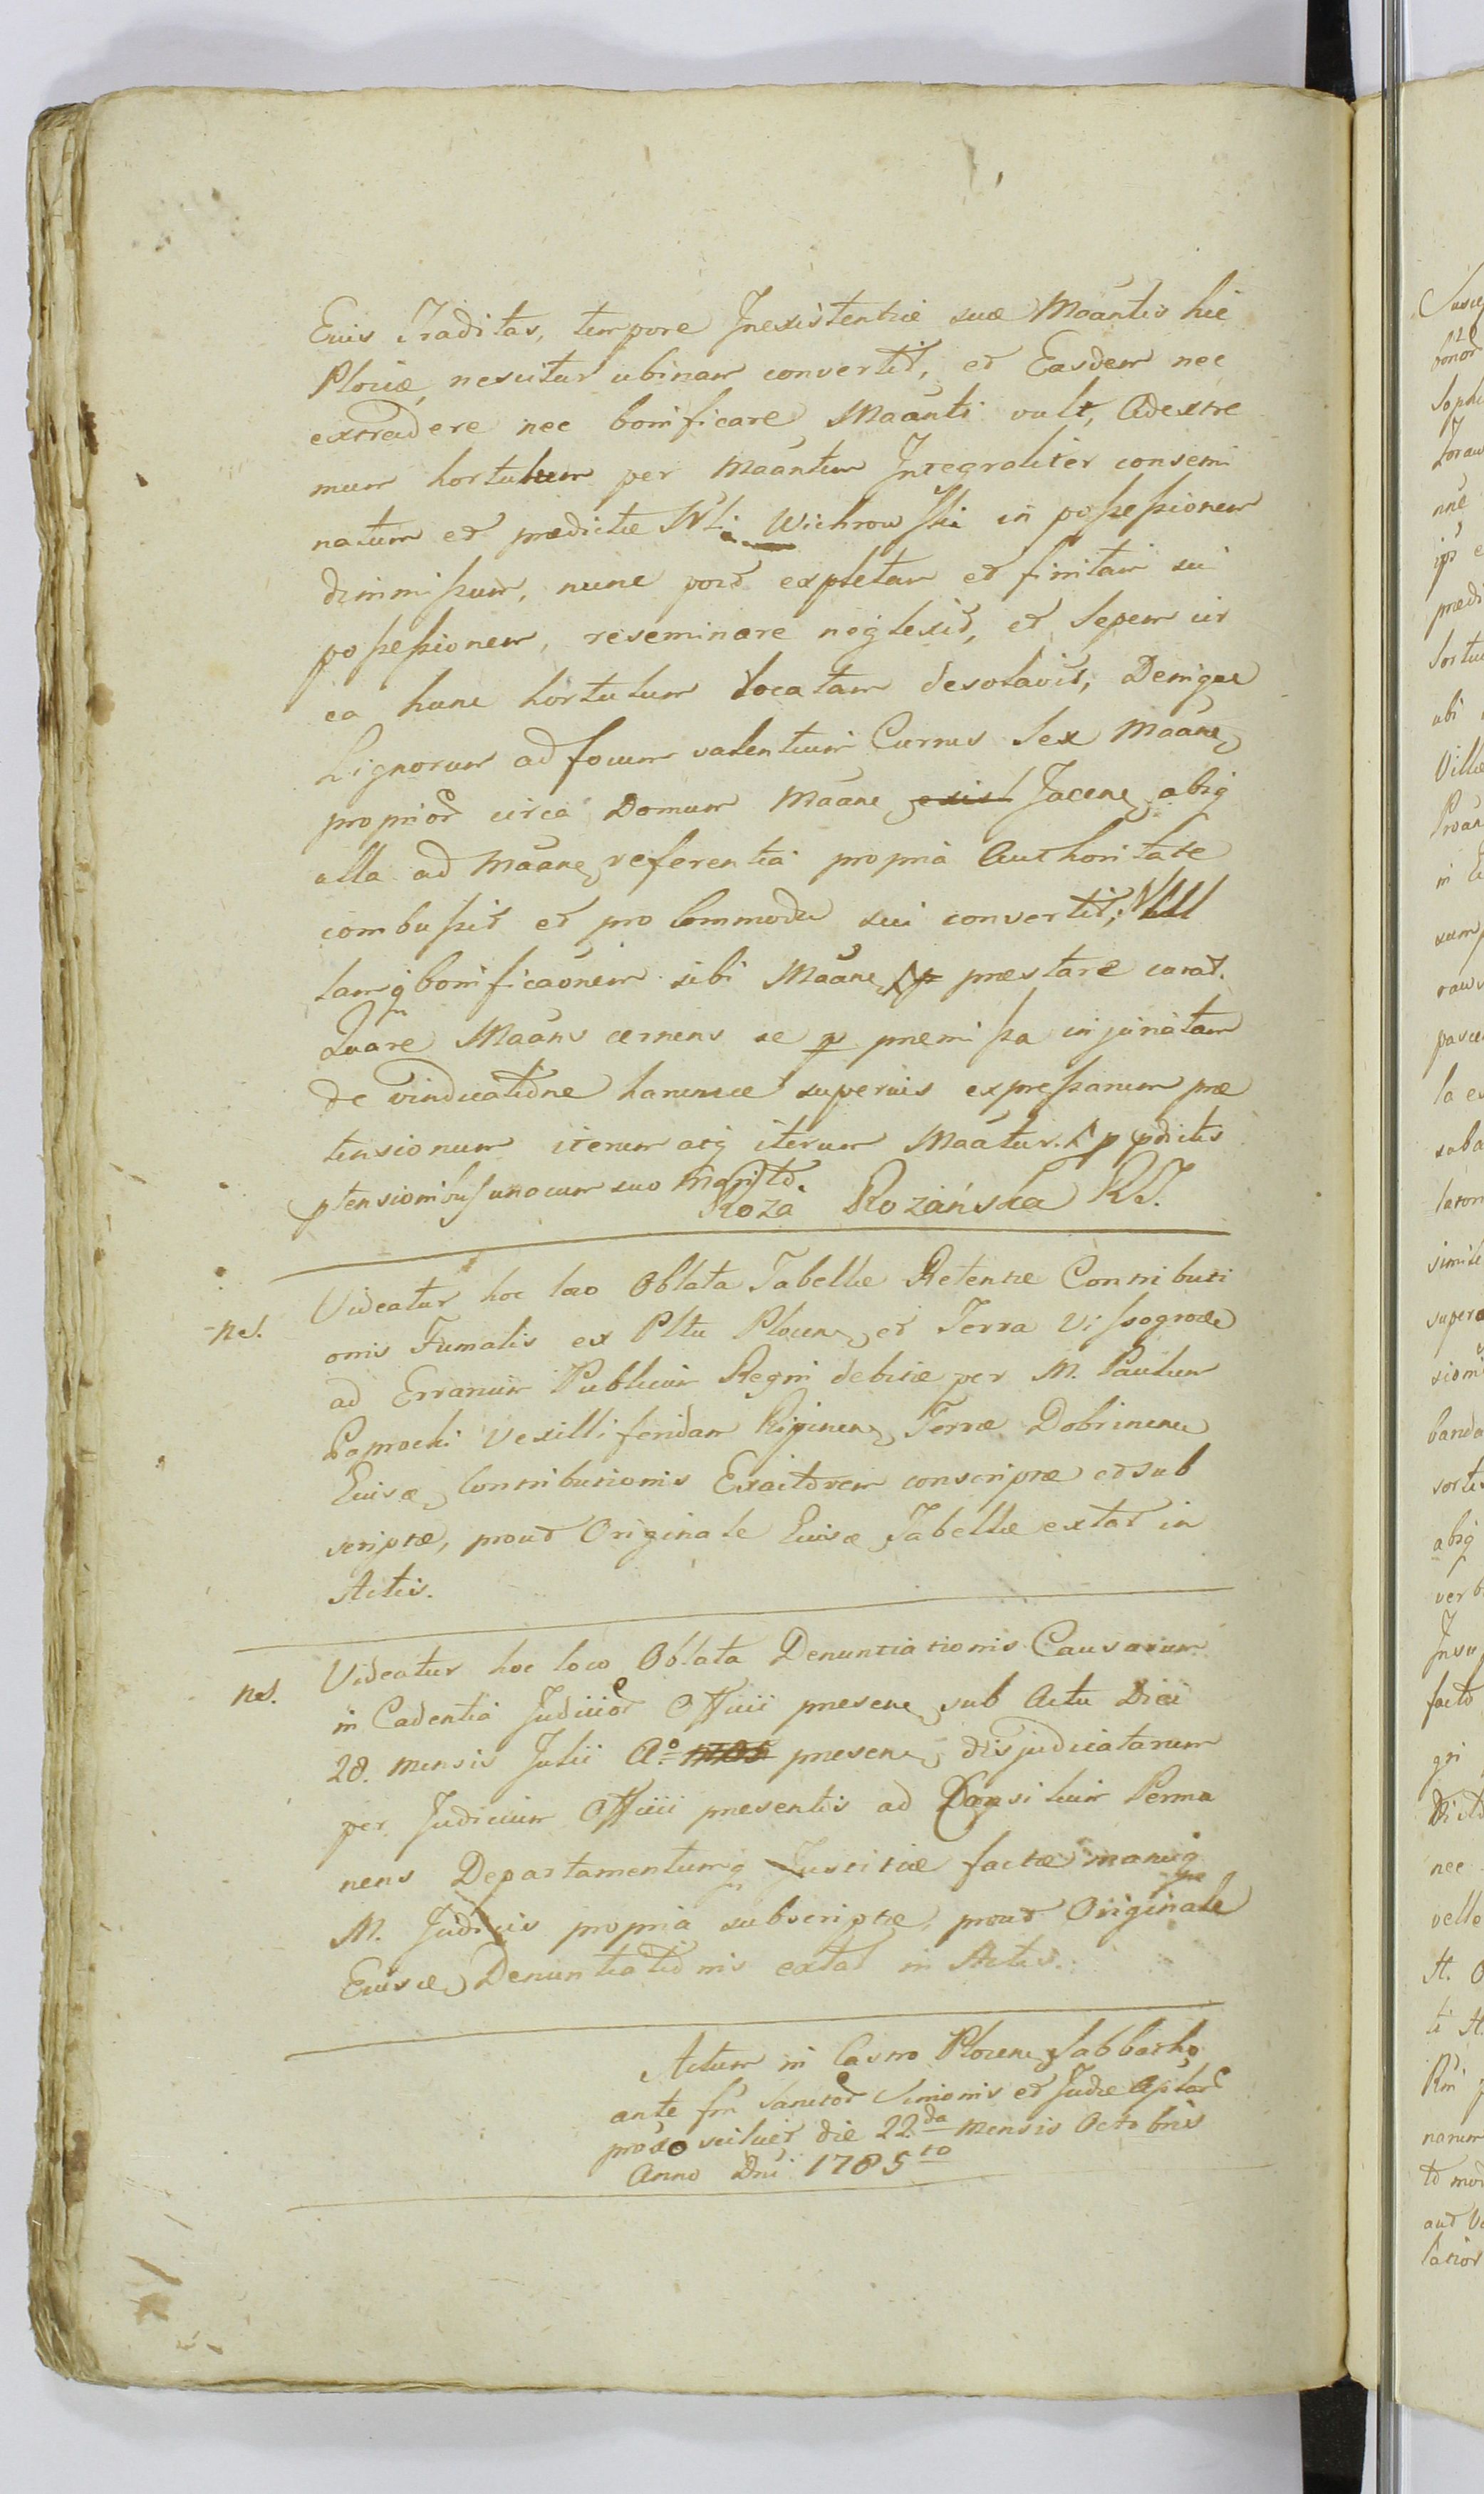 Euis Traditas, tempore Inexistentiæ suæ Maantis hic
Plociæ, nescitur ubinam convertit, et Easdem nec
extradere nec bonificare Maanti vult, Adextre
mum hortulum per Maantem Integraliter consemi
natum et prædictæ Nli Wichrowski in possessionem
dimmissum, nunc post expletam et finitam sui
possessionem, reseminare neglexit, et Sepem cir
ca hunc hortulum locatam desolavit, Denique
Lignorum ad focum valentium Currus Sex Maane
proprior circa Domum Maane exist Jacene absq
ulla ad Maane referentia propria Authoritate
combussit et pro Commodu sui convertit, Null
lamq bonificaonem sibi Maane præstare curat.
Quare Maans cernens se p præmissa injuriatam
de vindicatione harumce superius expressarum præ
tensionum iterum atq iterum Maatur. pdictis
ptensionibus unacum suo Marito.
Roza Rozańska RJ.
ns. Videatur hoc loco Oblata Tabellæ Retentæ Contributi
onis Fumalis ex Pltu Plocen et Terra Vissogrod
ad Errarium Publicum Regni debitæ per M. Paulum
Paprocki Vexilliferidam Ripinen Terræ Dobrinene
Euisæ Contributionis Exactorem conscriptæ et sub
scriptæ, prout Originale Euisæ Tabellæ extat in
Actis.
ns. Videatur hoc loco Oblata Denuntiationis Causarum
in Cadentia Judicior Officii presene sub Actu Diei
28. mensis Julii Ao 1785 presene disjudicatarum
per Judicium Officii presentis ad Consilium Perma
nens Departamentumq Justitiæ factæ manuq
M. Judicis propria subscriptæ, prout Originale
Euisæ Denuntiationis extat in Actis.
Actum in Castro Plocene Sabbatho
ante fm Sanctor Simonis et Judæ Aplor
proxo scilicet die 22da mensis Octobris
Anno Dni 1785to